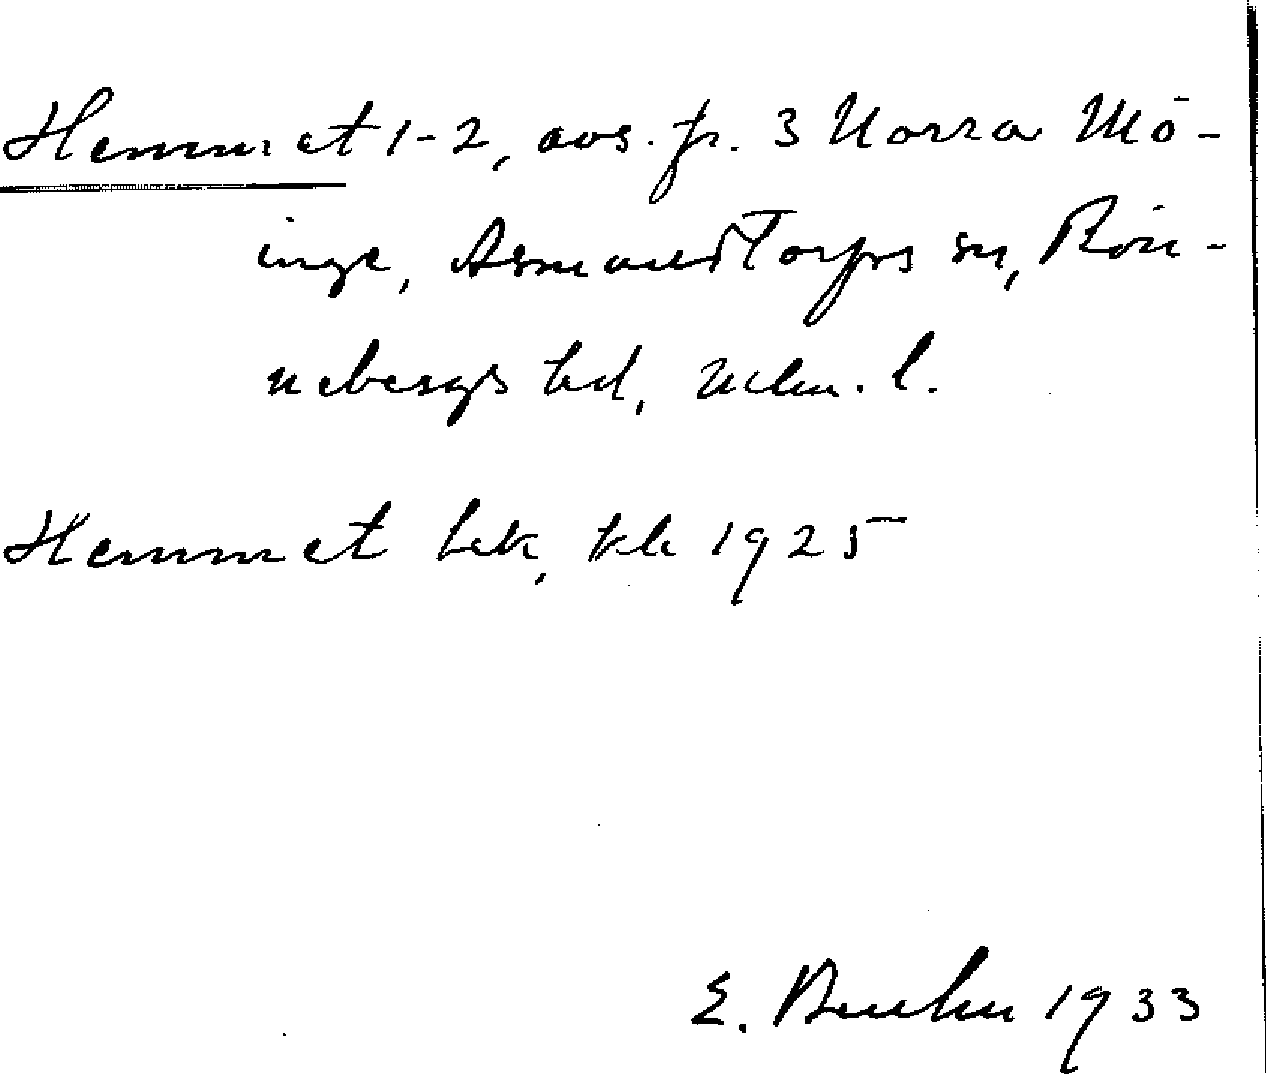 Hemmet 1-2, avs. fr. 3 Norra Mö-
inge, Asmundtorps sn, Rön-
nebergs hd, Mlm. l.
Hemmet bek, tkb 1925
E. 1933